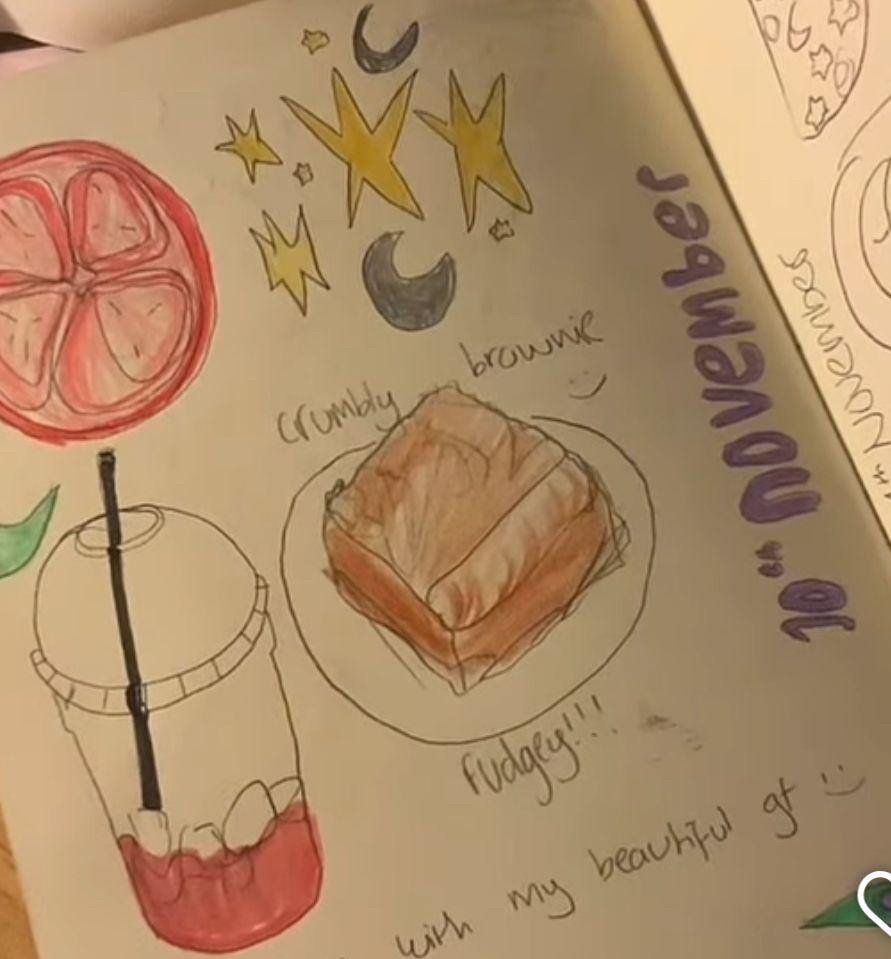 crumbly brownie :)
fudgey!!!
with my beautiful gf :)
10th November
November